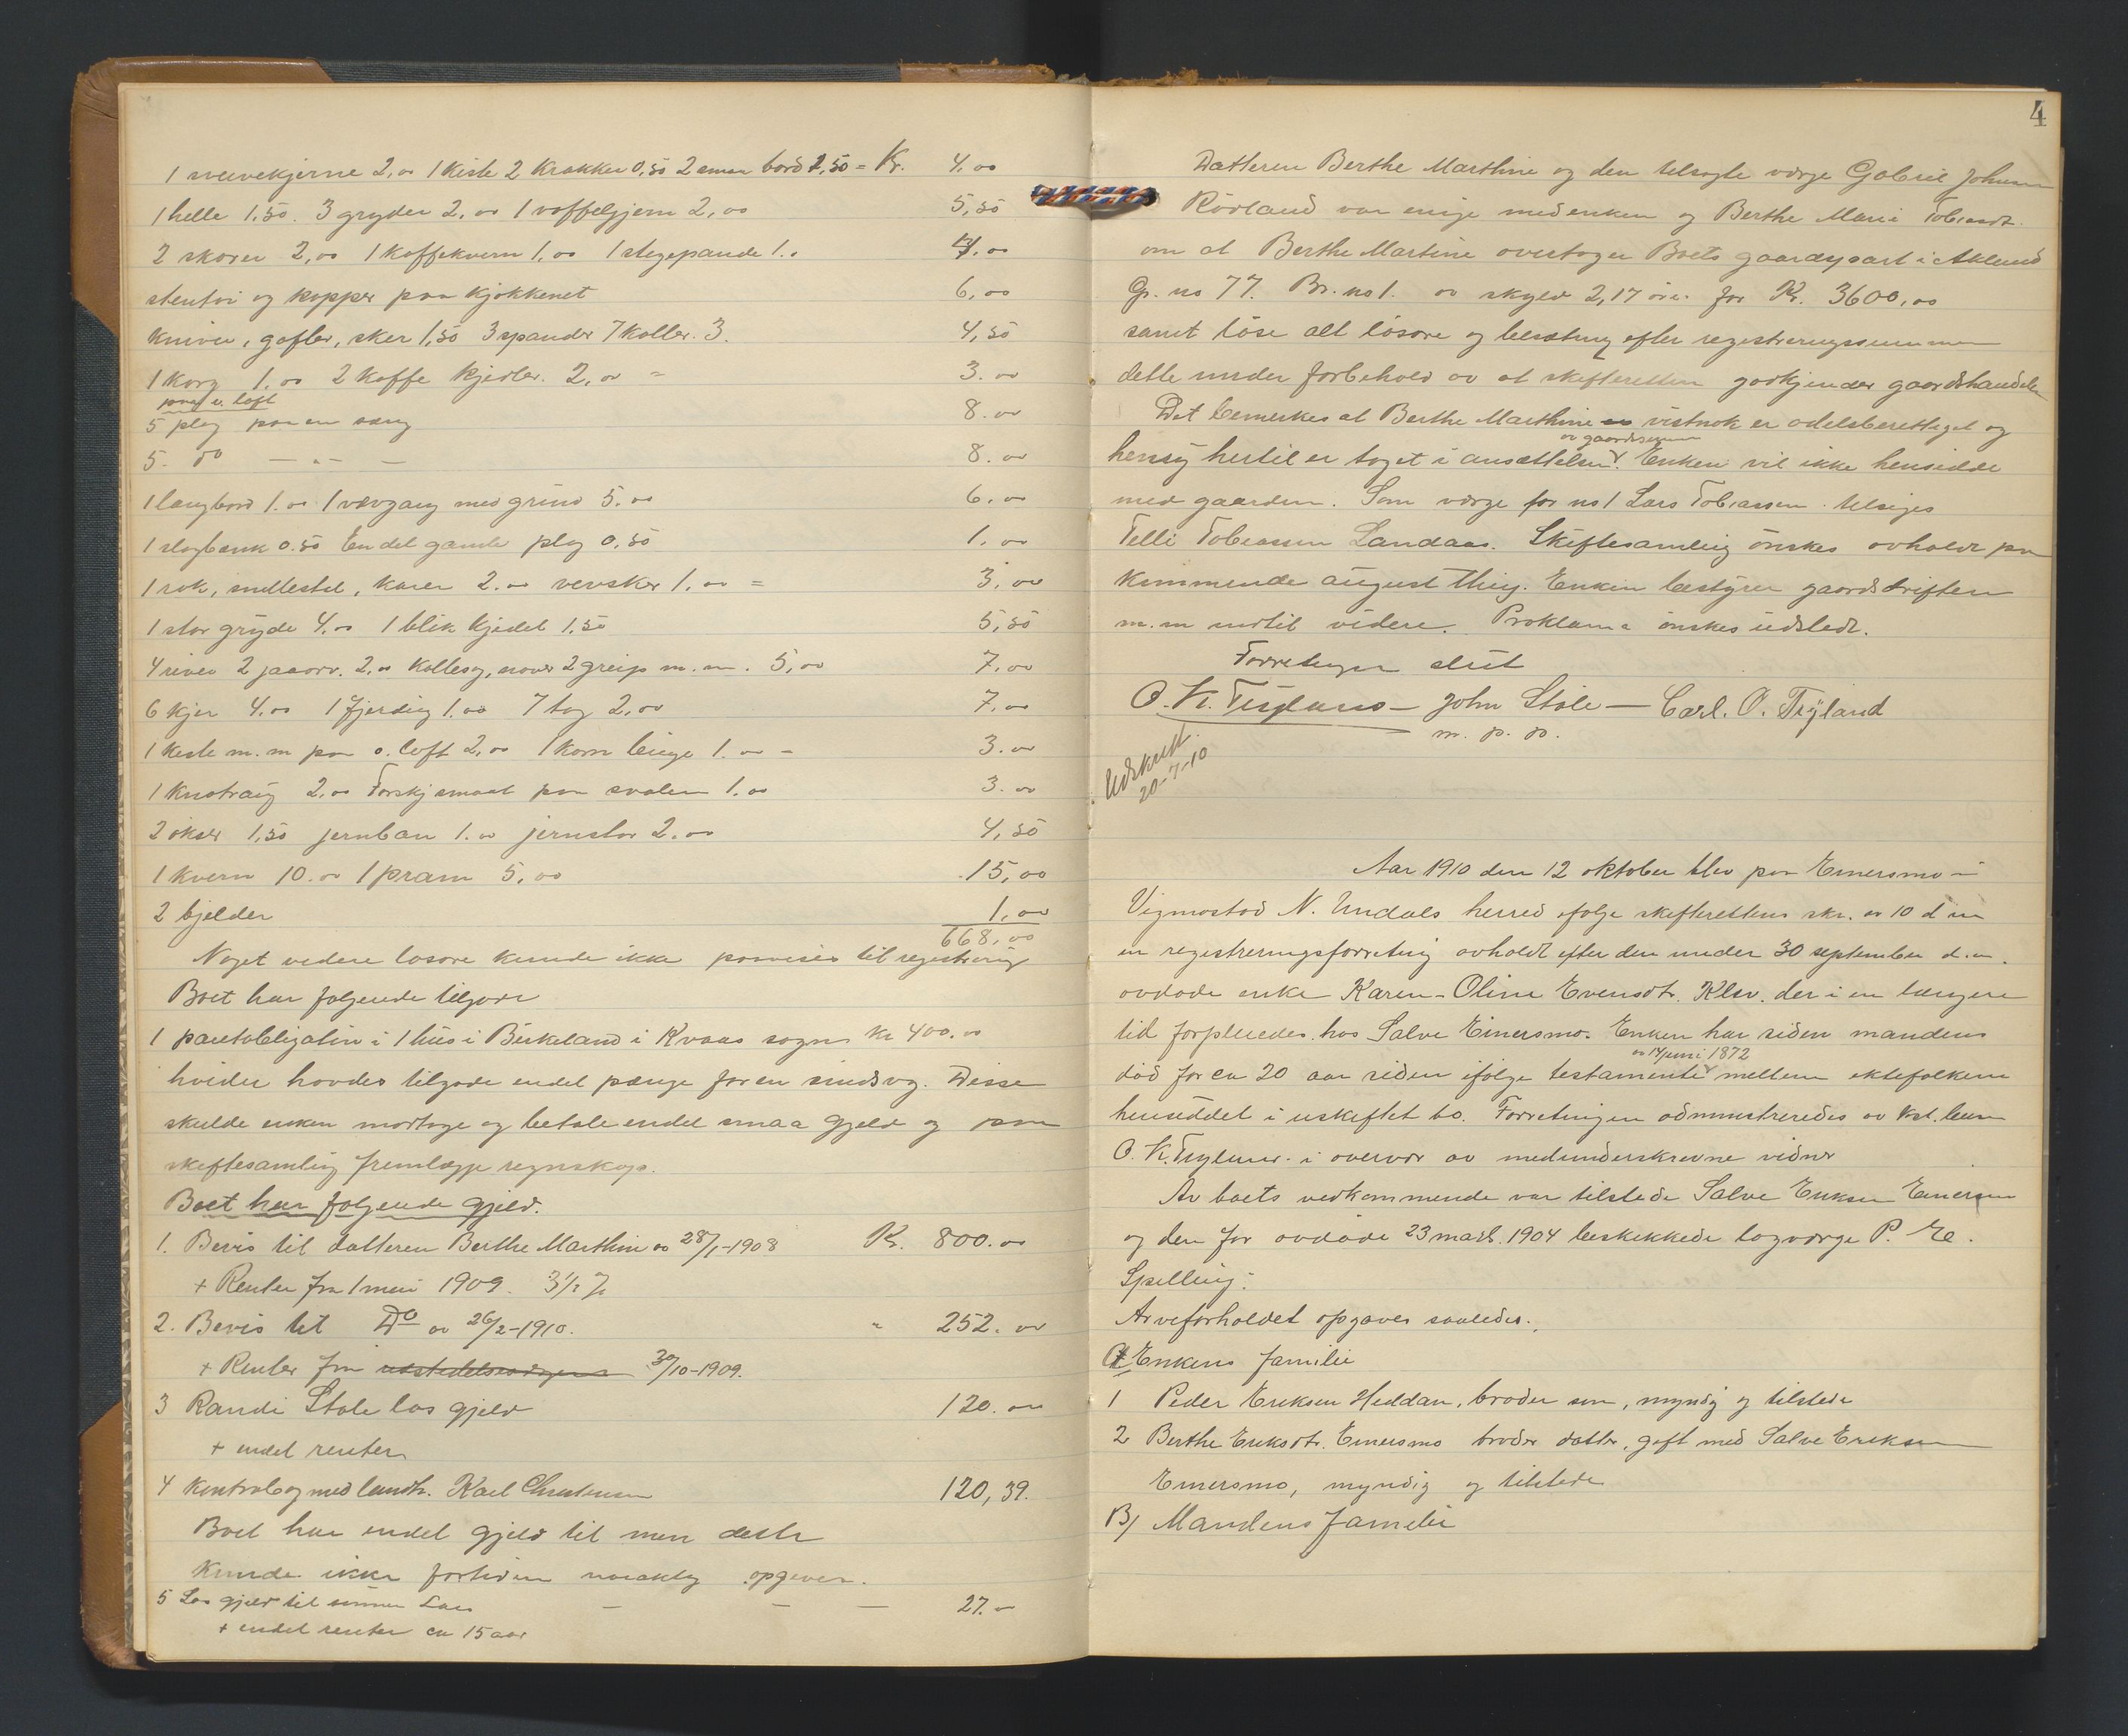 1 sveivekjerne 2,00 1 kiste 2 krakker 0,50 2 smaa bord 1,50 = Kr. 4,00
1 helle 1,50. 3 gryder 2,00 1 vaffeljern 2,00 5,50
2 skorer 2,00 1 kaffekvern 1,00 1 stegepande 1.. 4,00
stentøi og kopper paa kjøkkenet 6,00
kniver, gafler, sker 1,50 3 spander 7 koller. 3. 4,50
1 korg 1.00 2 kaffe kjedler. 2,00 = 3.00
paa v. loft
5 plag paa en seng 8.00
5. do — „ — 8.00
1 langbord 1.00 1 vævgang med grind 5.00 6.00
1 slagbænk 0.50 En del gamle plag 0,50 1.00
1 rok, snellestol, karer 2.00 vevsker 1.00 = 3.00
1 stor gryde 4.00 1 blik kjedel 1.50 5,50
4 river 2 jaaorv. 2,00 kollesag, naver 2 greip m.m. 5,00 7.00
6 kjer 4.00 1 fjerding 1.00 7 tag 2,00 7.00
1 kiste m.m paa ø. loft 2,00 1 korn binge 1.00 - 3.00
1 knotraug 2.00 Forskj smaat paa svalen 1.00 3.00
2 økser 1,50 jernban 1.00 jernstør 2.00 4,50
1 kvern 10.00 1 pram 5,00 15,00
2 bjelder 1,00
668,00
Noget videre løsøre kunde ikke paavises til registrering
Boet har følgende tilgode
1 pantobligation i 1 hus i Birkeland i Kvaas sogn Kr 400.00
hvider havdes tilgode endel penge for en sindsvg. Disse
skulde enken mottage og betale endel smaa gjeld og paa
skiftesamling fremlægge regnskap.
Boet har følgende gjeld.
1. Bevis til datteren Berthe Marthine av 28/1-1908 Kr. 800.00
+ Renter fra 1 mai 1909. 3½ %
2. Bevis til Do av 26/2-1910. „ 252.00
+ Renter fra utstedelsesdagen 30/10-1909.
3 Randi Støle løs gjeld 120.00
+ endel renter
4 Kontrabog med landh. Karl Christensen 120,39.
Boet har endel gjeld til men dette
kunde ikke fortiden nøiaktig opgives.
5 Løs gjeld til sønnen Lars — — — 27.00
+ endel renter ca 15 aar
4
Datteren Berthe Marthine og den tilsagte verge Gabriel Johnsen
Rörland var enige med enken og Berthe Marie Tobiasdt.
om at Berthe Martine overtager Boets gaardspart i Aklund
Gr. no 77. Br. no 1. av skyld 2,17 øre. for Kr. 3600,00
samt løse alt løsøre og besetning efter registreringssummen
dette under forbehold av at skifteretten godkjender gaardshandelen
Det bemerkes at Berthe Marthine vistnok er odelsberettiget og
av gaardssummen
hensyn hertil er taget i ansættelsen. Enken vil ikke hensidde
med gaarden. Som verge for no 1 Lars Tobiassen tilsiges
Telli Tobiassen Landaas. Skiftesamling önskes avholdt paa
kommende august thing. Enken bestyrer gaardsdriften
m.m indtil videre. Proklama önskes udstedt.
Forretningen slut
O. K. Tryland — John Støle — Carl. O. Trÿland
m. p. p.
Udskrift
20-7-10
Aar 1910 den 12 oktober blev paa Emersmo i
Vigmostad N. Undals herred ifølge skifterettens skr. av 10 d m
en registreringsforretning avholdt efter den under 30 september d.a.
avdøde enke Karen-Oline Evensdtr. Klev. der i en længere
tid forpleiedes hos Salve Eimersmo. Enken har siden mandens
av 14 juni 1872
död for ca 20 aar siden ifølge testamente mellem ektefolkene
hensiddet i uskiftet bo. Forretningen administreredes av kst. lensm
O. K. Tryland i overvær av medunderskrevne vidner
Av boets vedkommende var tilstede Salve Eriksen Emersmo
og den for avdøde 23 mars. 1904 beskikkede lagverge P. E.
Spilling.
Arveforholdet opgaves saaledes.
A Enkens familie
1 Peder Eriksen Heddan, broder søn, myndig og tilstede
2 Berthe Eriksdtr. Emersmo broder datter, gift med Salve Eriksen
Emersmo, myndig og tilstede
B/ Mandens familie